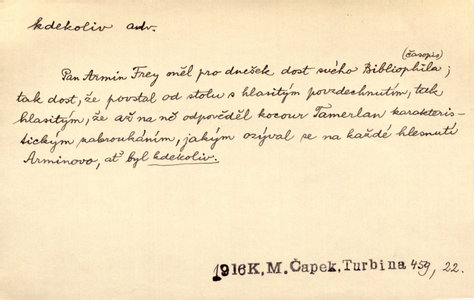 kdekoliv adv.
(časopis)
Pan Armin Frey měl pro dnešek dost svého Bibliophila;
tak dost, že povstal od stolu s hlasitým povzdechnutím, tak
hlasitým, že až na ně odpověděl kocour Tamerlan karakteris-
tickým zabroukáním, jakým ozýval se na každé hlesnutí
Arminovo, ať byl kdekoliv.
1916 K. M. Čapek, Turbina 459, 22.